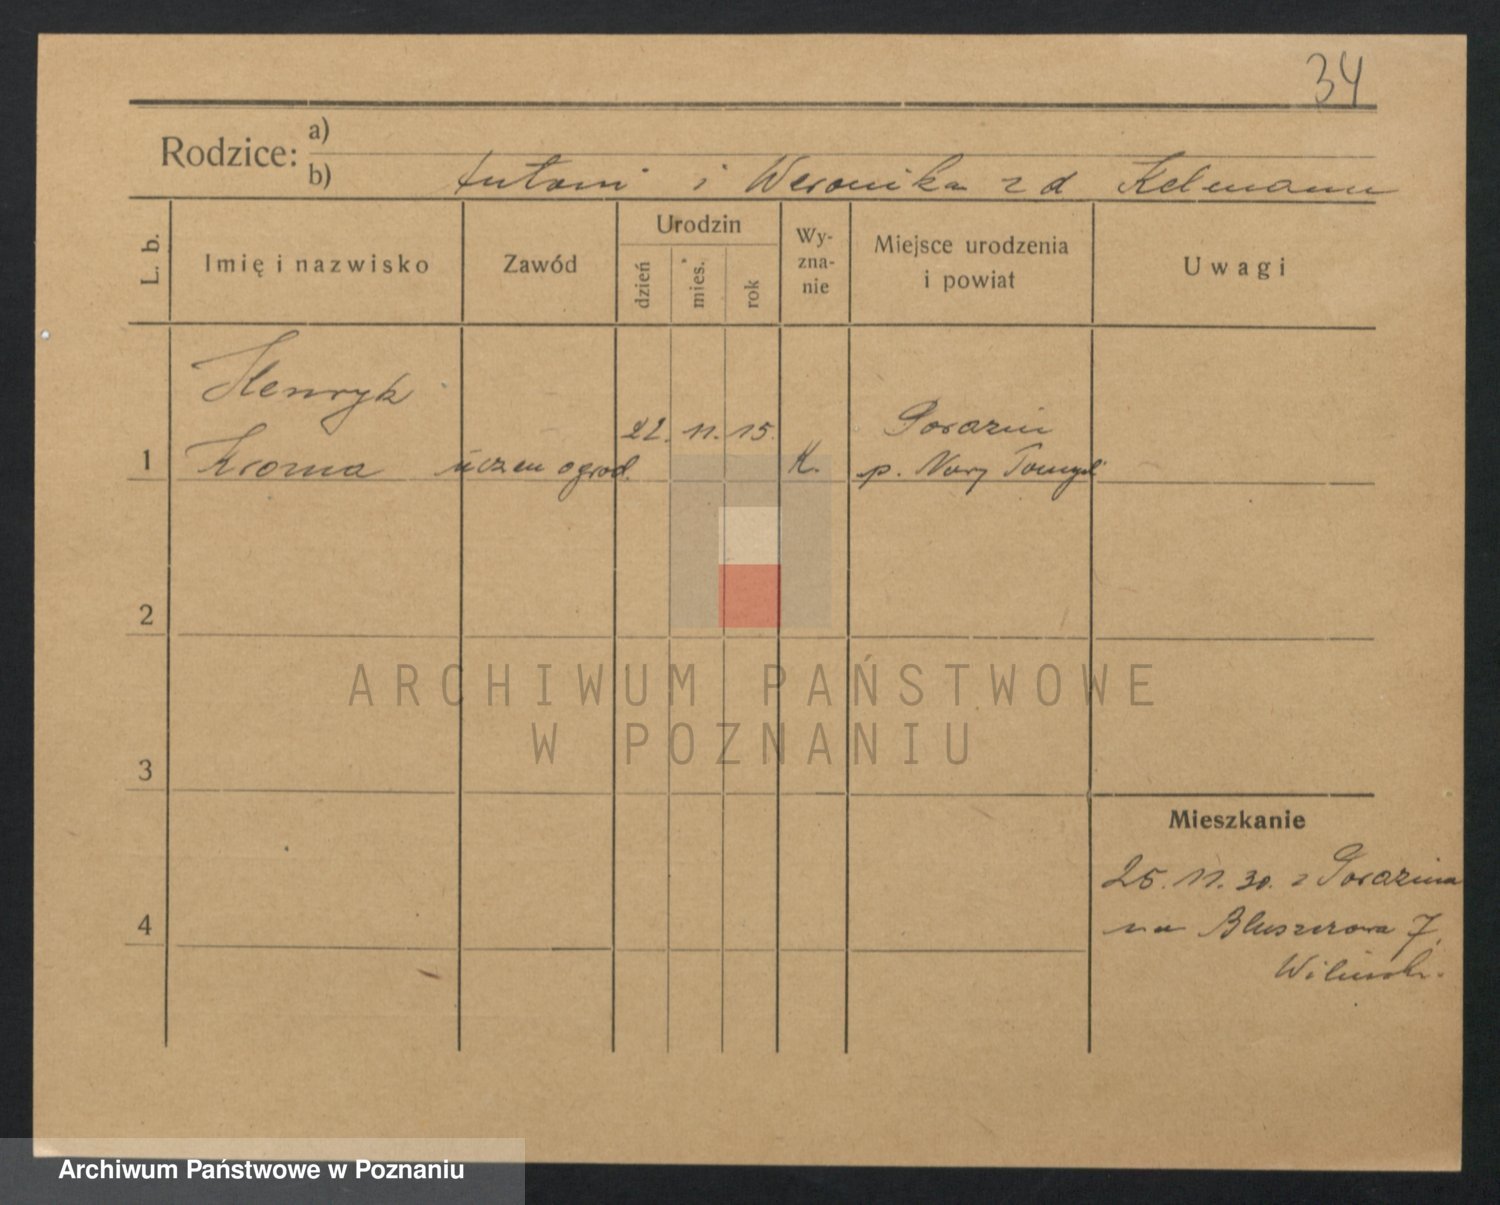 34
Rodzice: a)
b) Antoni i Weronika z d Kelmann
L. b. Imię i nazwisko Zawód Urodzin dzień mies. rok Wy-zna-nie Miejsce urodzenia i powiat Uwagi
Henryk
22. 11. 15. Porazin
1 Kroma uczeń ogrod. K. p. Nowy Tomyśl
2
ARCHIWUM PAŃSTWOWE
W POZNANIU
3
Mieszkanie
25. 11. 30. z Porazina
4 na Bluszczowa 7,
Archiwum Państwowe w Poznaniu